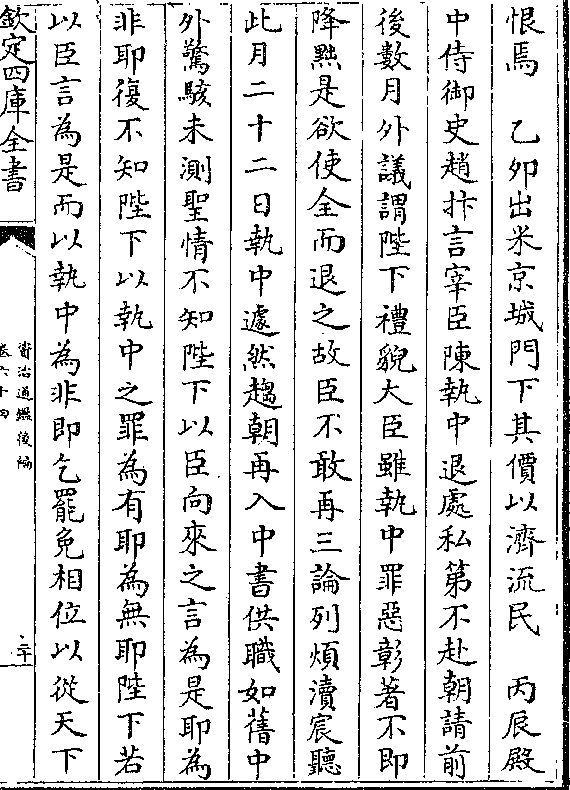 恨焉　乙卯出米京城門下其價以濟流民　丙辰殿
中侍御史趙抃言宰臣陳執中退處私第不赴朝請前
後數月外議謂陛下禮貌大臣雖執中罪惡彰著不即
降黜是欲使全而退之故臣不敢再三論列煩瀆宸聽
此月二十二日執中遽然趨朝再入中書供職如舊中
外驚駭未測聖情不知陛下以臣向來之言為是耶為
非耶復不知陛下以執中之罪為有耶為無耶陛下若
以臣言為是而以執中為非即乞罷免相位以從天下
欽定四庫全書
資治通鑑後編
卷六十四
二十